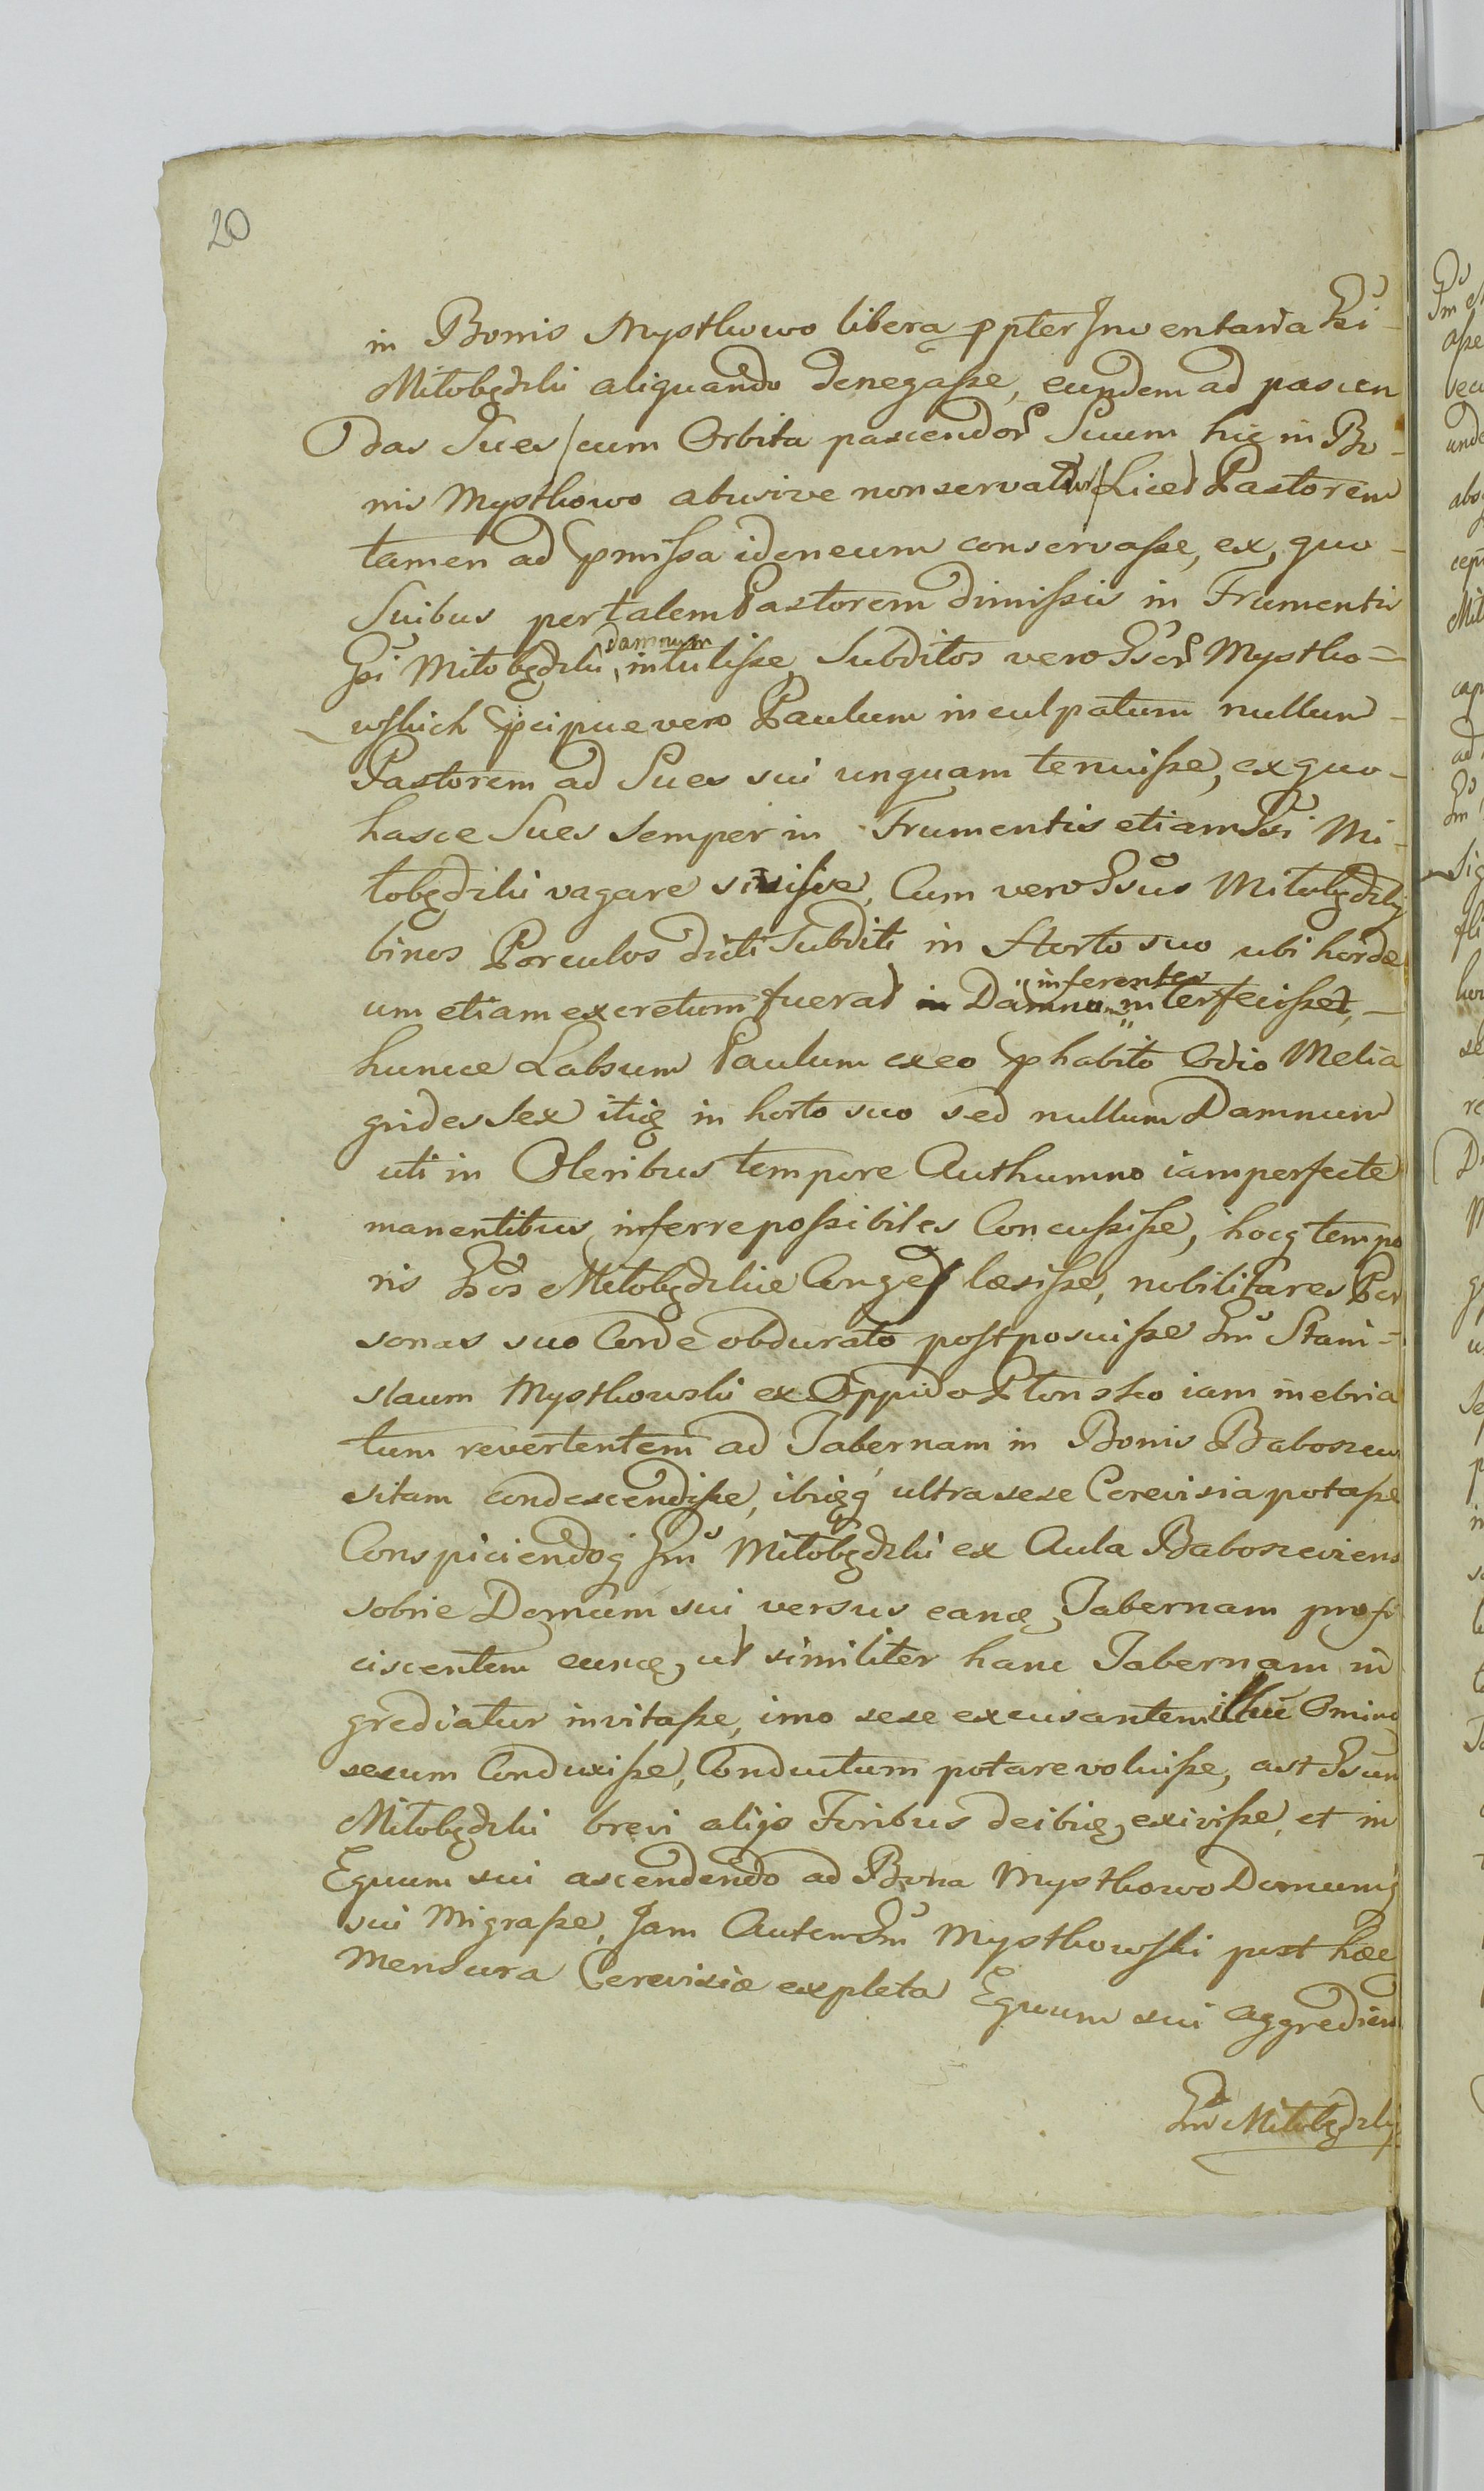 20
in Bonis Mystkowo libera ppter Inventaria Gsi
Miłobędzki aliquando denegaſse, eundem ad pascen
das Sues /cum Orbita pascendor Suum hic in Bo-
nis Mystkowo abusive non servatur/ Licet Pastorem
tamen ad pmiſsa idoneum conservaſse, ex quo-
Suibus per talem Pastorem dimiſsis in Frumentis
Gsi Miłobędzki damnum intuliſse, Subditos vero Gsor Mystko=
wſkich pcipue vero Paulum inculpatum nullum-
Pastorem ad Sues sui unquam tenuiſse, ex quo-
hasce Sues semper in Frumentis etiam Gsi Mi-
łobędzki vagare siviſse, Cum vero Gsus Miłobędzki
binos Porculos dicti Subditi in Horto suo ubi horde
um etiam excretum fuerat in Damnum inferentes interfeciſset,-
huncce Labsum Paulum ex eo p habito Odio Melea
grides Sex itiq in horto suo sed nullum Damnum
uti in Oleribus tempore Authumno iam perfecte
manentibus, inferre poſsibiles Concuſsiſse, hocq tempo
ris Gsos Miłobędzkie Conges læsiſse, nobilitares Per
sonas suo Corde obdurato poſtposuiſse Gm Stani-
slaum Mystkowski ex Oppido Płonsko iam inebria
tum revertentem ad Tabernam in Bonis Baboszew
sitam condescendiſse, ibiqq ultra sese Cerevisia potaſse
Conspiciendoq Gm Miłobędzki ex Aula Baboszeviens
sobrie Domum sui versus eance Tabernam profi
ciscentem eunce, ut similiter hanc Tabernam in
grediatur invitaſse, imo sese excusantem illuc Omino
secum Conduxiſse, Conductum potare voluiſse, ast Gsum
Miłobędzki brevi alijs Foribus deibiq exiviſse, et in
Equum sui ascendendo ad Bona Mystkowo Domumq
sui Migraſse, Jam Autem Gm Mystkowſki post hæc
Mensura Cerevisiæ expleta Equum sui aggredien
Gm Miłobędzki